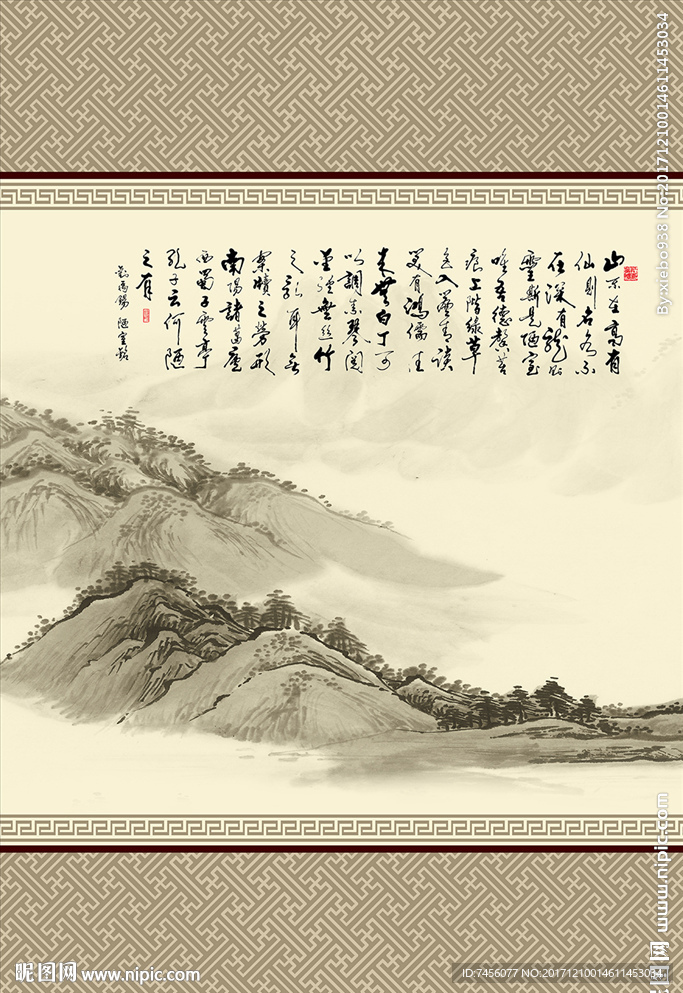 山不在高有
仙則名水不
在深有龍則
靈斯是陋室
唯吾德馨苔
痕上階綠草
色入簾青談
笑有鴻儒往
来無白丁可
以調素琴閱
金經無絲竹
之亂耳無
案牘之勞形
南陽諸葛廬
西蜀子雲亭
孔子云何陋
之有
劉禹錫 陋室銘
By:xiebo938 No:20171210014611453034
昵图网 www.nipic.com
昵图网 www.nipic.com
ID:7456077 NO:20171210014611453034